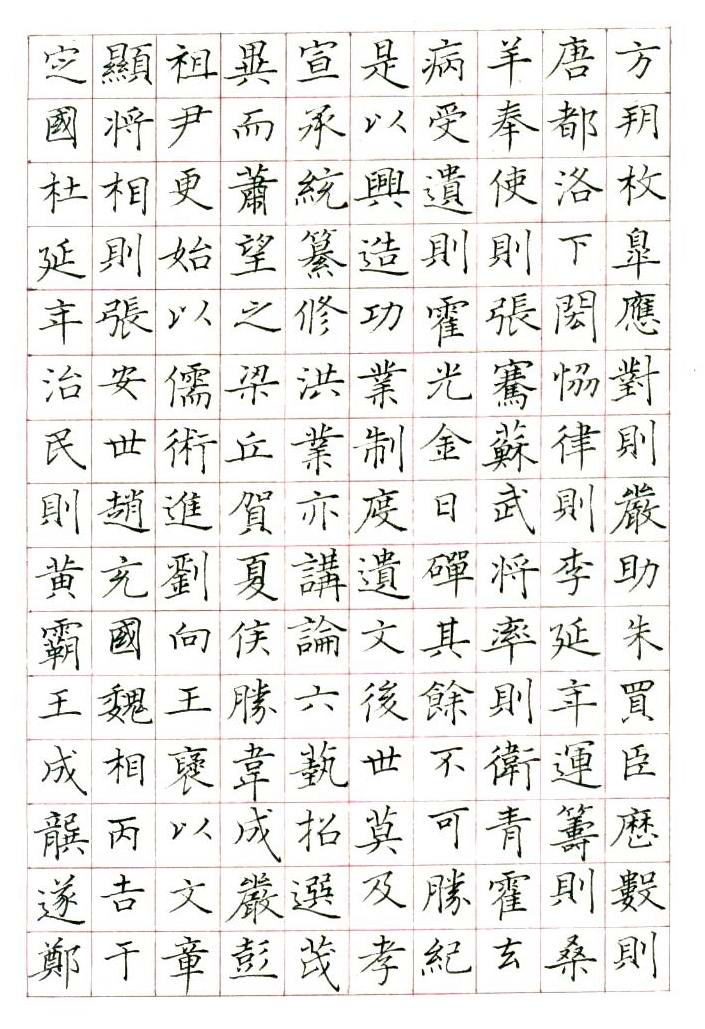 方朔枚皐應對則嚴助朱買臣歷數則
唐都洛下閎恊律則李延年運籌則桑
羊奉使則張騫蘇武将率則衛青霍去
病受遺則霍光金日磾其餘不可勝紀
是以興造功業制度遺文後世莫及孝
宣承統纂修洪業亦講論六藝招選茂
異而蕭望之梁丘賀夏侯勝韋成嚴彭
祖尹更始以儒術進劉向王襃以文章
顯将相則張安世趙充國魏相丙吉于
定國杜延年治民則黄霸王成龔遂鄭